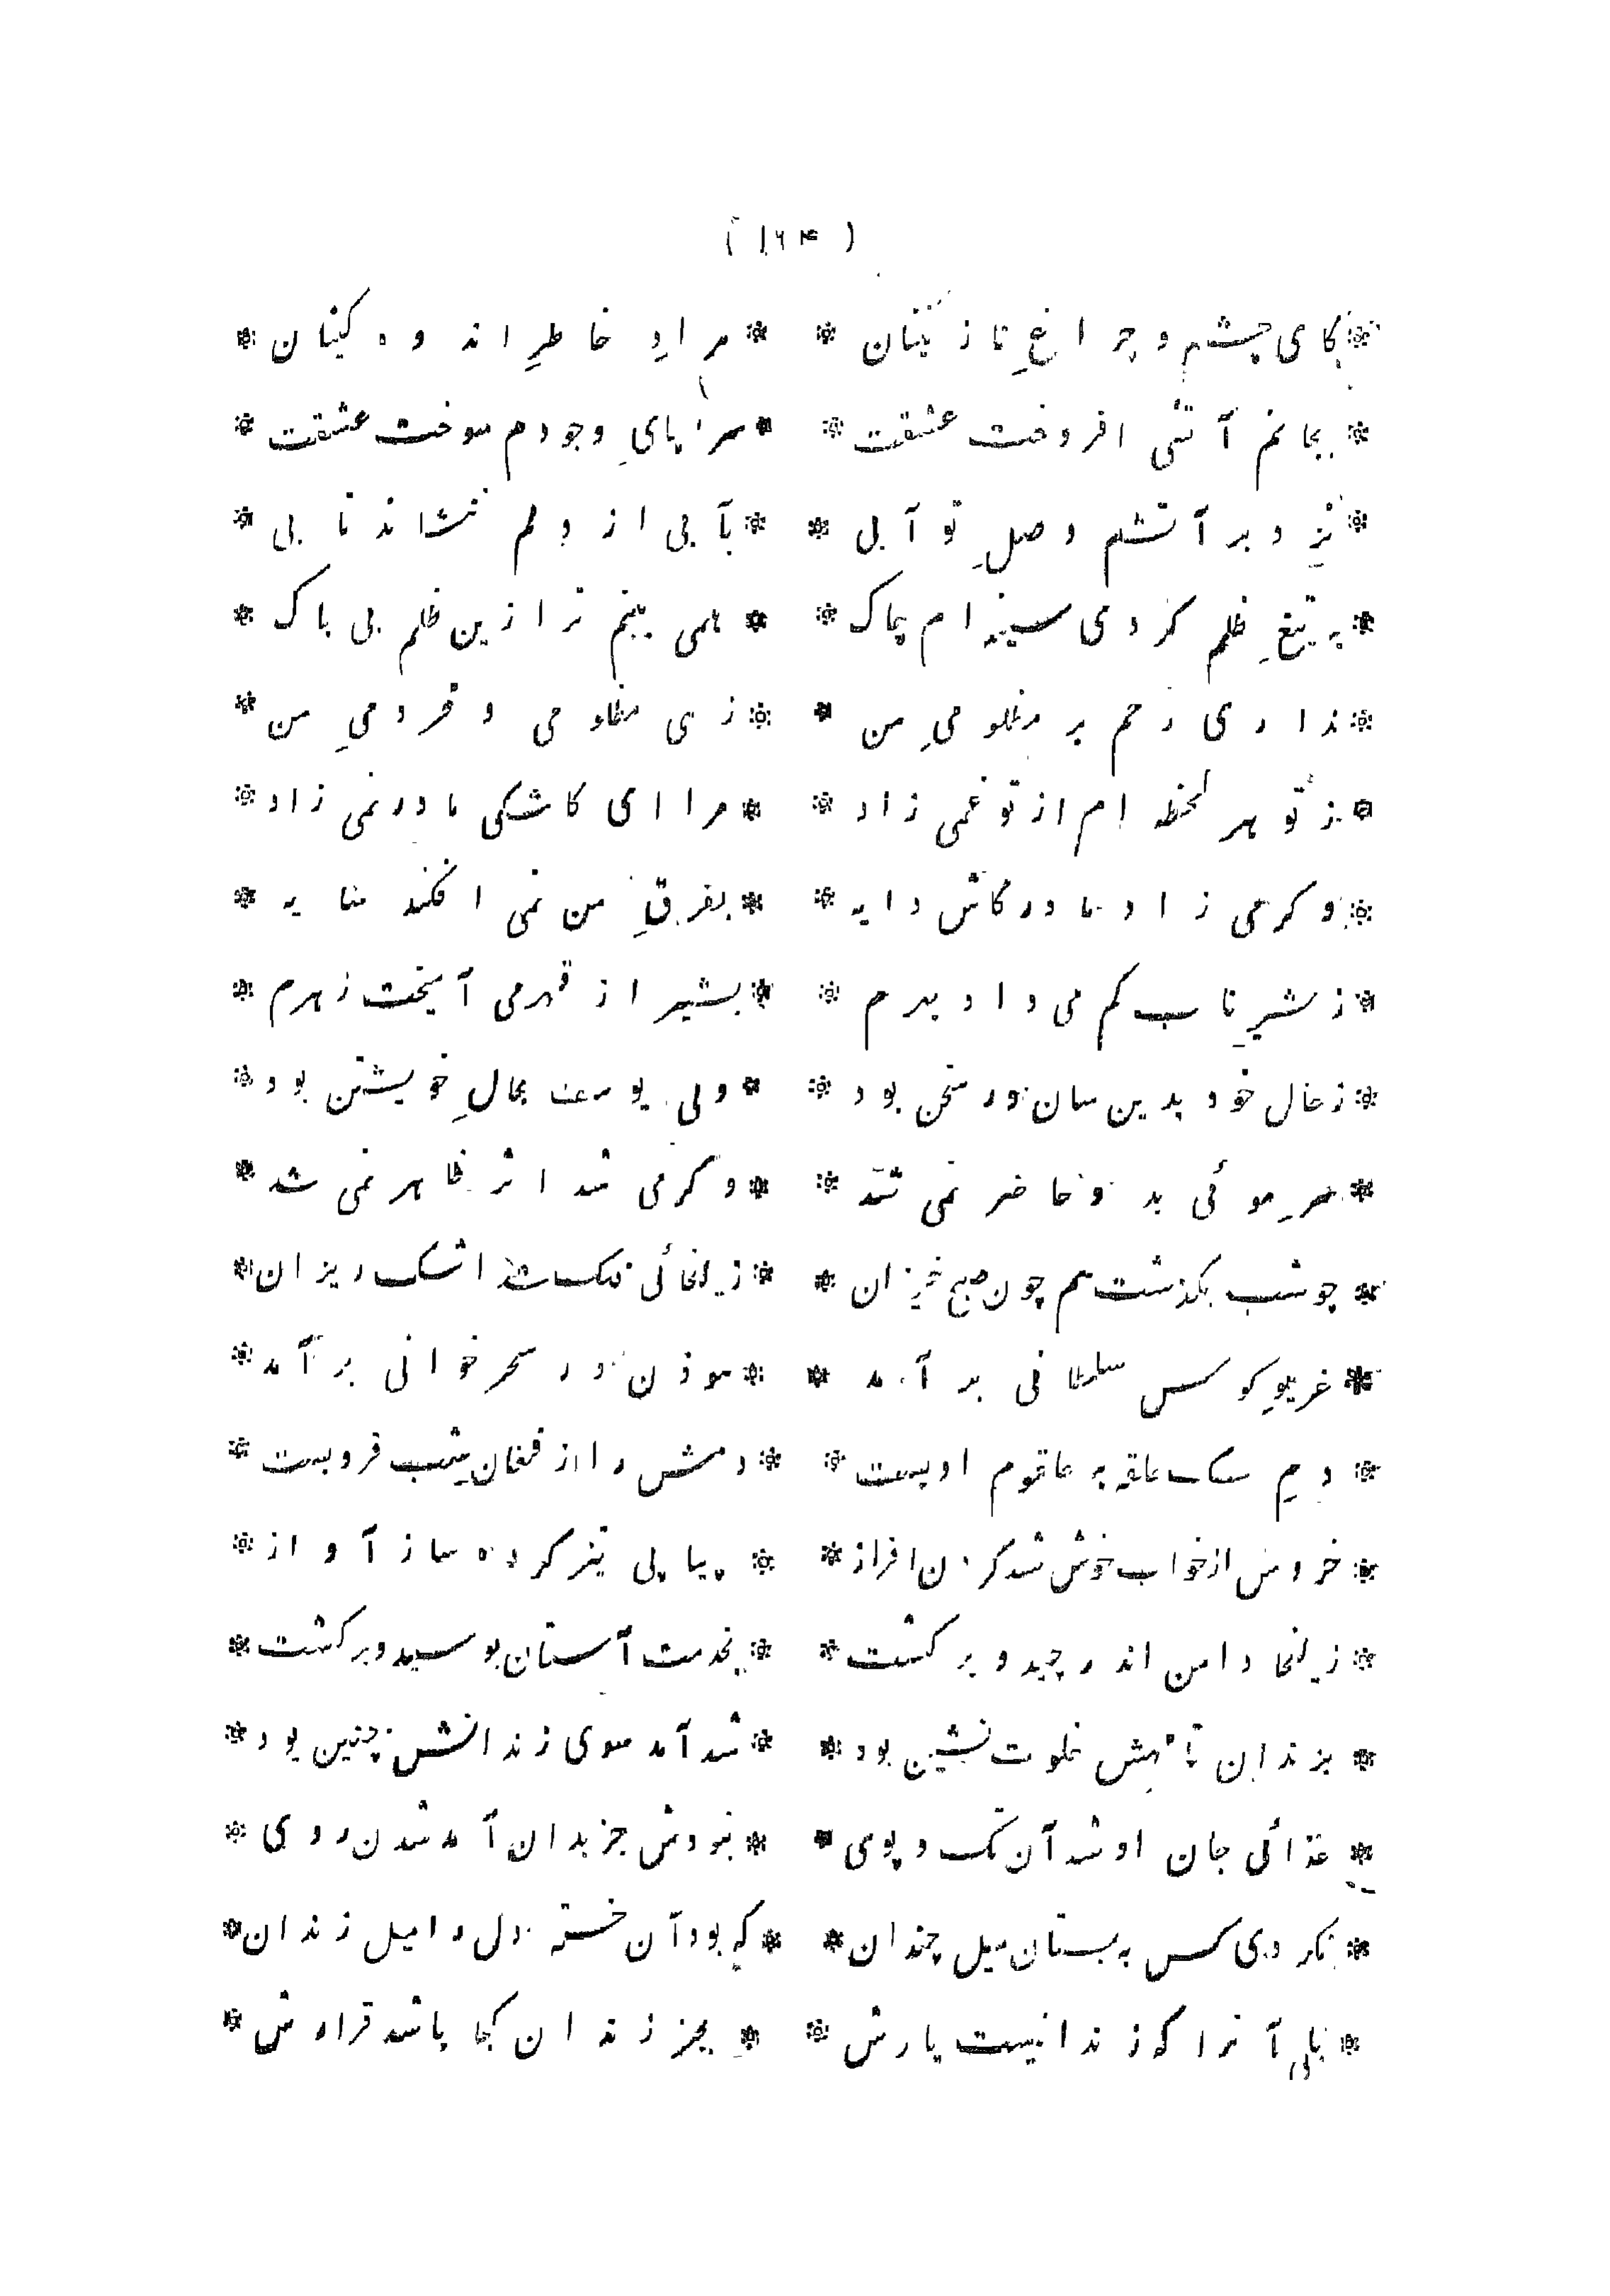 ( ۱۶۴ )
* کای چشم و چراغِ نازنینان * * مرادِ خاطرِ اندوه کینان *
* بجانم آتشی افروخت عشقت * * سراپایِ وجودم سوخت عشقت *
* نزد بر آتشم وصلِ تو آبی * * بآبی از دلم ننشاند تابی *
* به تیغِ ظلم کردی سینه ام چاک * * همی بینم ترا زین ظلم بی باک *
* نداری رحم بر مظلومیِ من * * زهی مظلومی و محرومیِ من *
* ز تو هر لحظه ام از تو غمی زاد * * مرا ای کاشکی مادر نمی زاد *
* و کر می زاد مادر کاش دایه * * بفرقِ من نمی افکند سایه *
* ز شیرِ ناب کم می داد بهرم * * بشیر از قهر می آمیخت زهرم *
* ز حال خود بدین سان در سخن بود * * ولی یوسف بحالِ خویشتن بود *
* سرِ موئی بدو حاضر نمی شد * * و کر می شد اثر ظاهر نمی شد *
* چو شب بگذشت هم چون صبح خیزان * * زلیخائی فلک شد اشک ریزان *
* غریوِ کوس سلطانی بر آمد * * موذن در سحر خوانی بر آمد *
* دمِ سک حلقه به حلقوم او بست * * دمش را از فغانِ شب فرو بست *
* خروس از خواب خوش شد کردن افراز * * پیاپی تیز کرده ساز آواز *
* زلیخا دامن اندر چید و بر کشت * * بخدمت آستان بوسید و بر کشت *
* بزندان تا مهش خلوت نشین بود * * شد آمد سوی زندانش چنین بود *
* غذائی جان او شد آن تک و پوی * * نبودش جز بدان آمد شدن روی *
* نکردی کس به بستان میل چندان * * که بود آن خسته دل را میل زندان *
* بلی آنرا که زندانیست یارش * * بجز زندان کجا باشد قرارش *